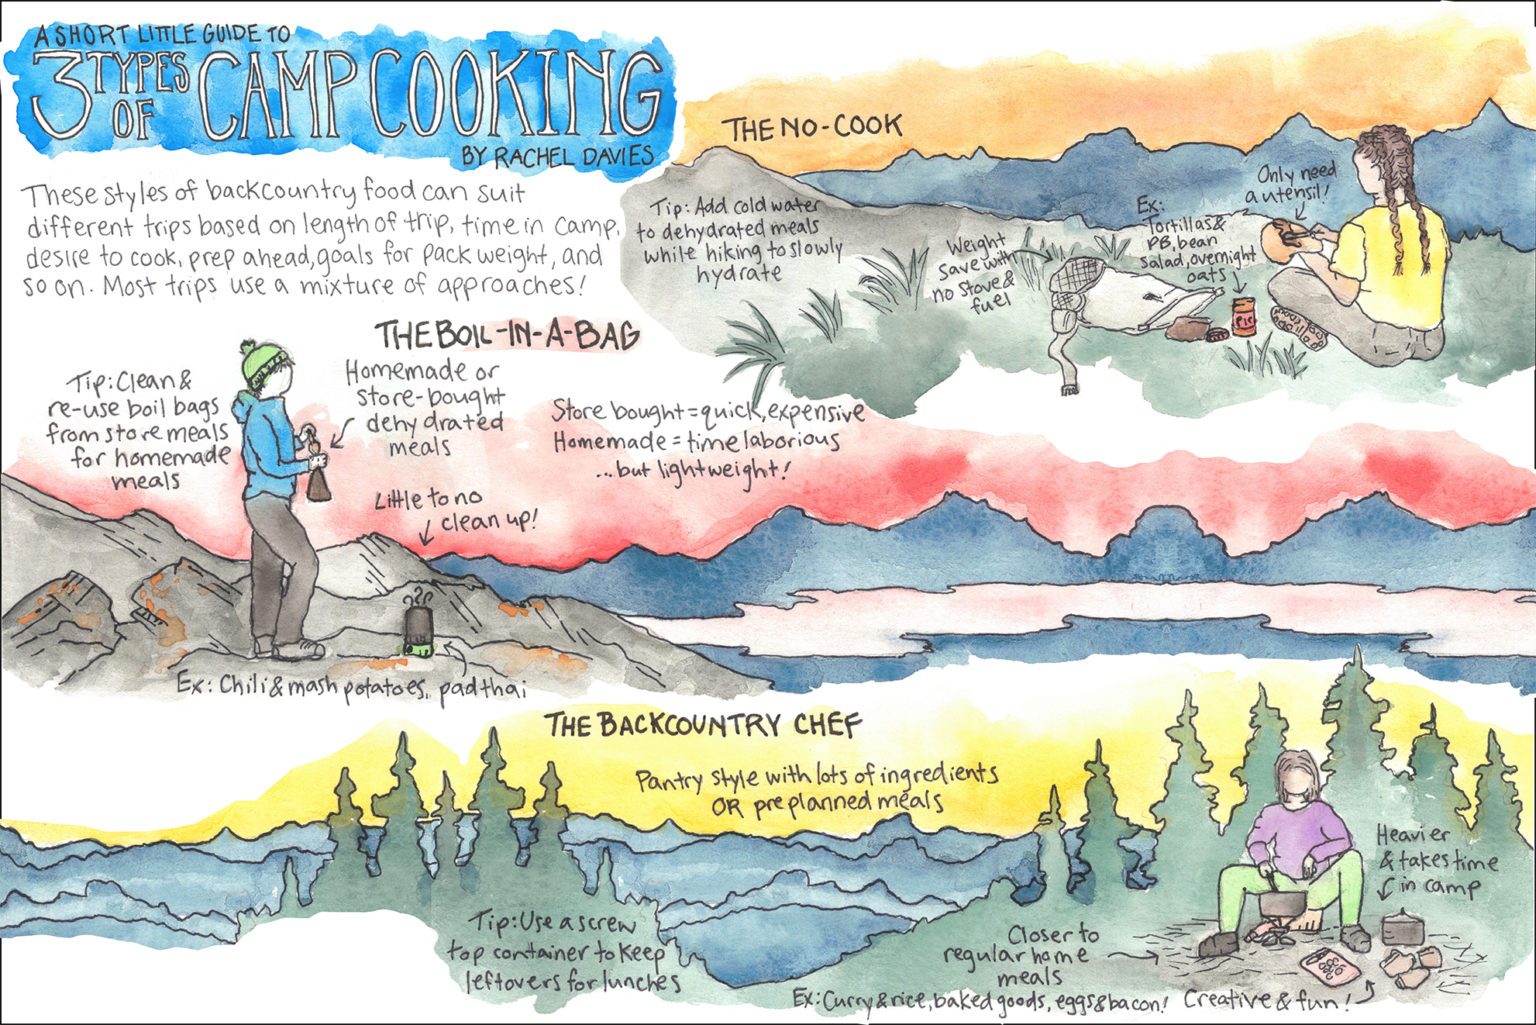 A SHORT LITTLE GUIDE TO
3 TYPES OF CAMP COOKING
BY RACHEL DAVIES
These styles of backcountry food can suit
different trips based on length of trip, time in camp,
desire to cook, prep ahead, goals for pack weight, and
so on. Most trips use a mixture of approaches!
THE NO-COOK
Tip: Add cold water
to dehydrated meals
while hiking to slowly
hydrate
Weight
save with
no stove &
fuel
Ex:
Tortillas &
PB, bean
salad, overnight
oats
Only need
a utensil!
THE BOIL-IN-A-BAG
Tip: Clean &
re-use boil bags
from store meals
for homemade
meals
Homemade or
store-bought
dehydrated
meals
Store bought = quick, expensive
Homemade = time laborious
...but lightweight!
Little to no
clean up!
Ex: Chili & mash potatoes, pad thai
THE BACKCOUNTRY CHEF
Pantry style with lots of ingredients
OR preplanned meals
Heavier
& takes time
in camp
Tip: Use a screw
top container to keep
leftovers for lunches
Closer to
regular home
meals
Ex: Curry & rice, baked goods, eggs & bacon!
Creative & fun!